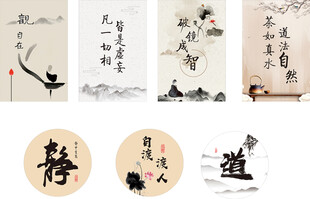 觀
自在
皆是虛妄
凡一切相
破
鏡
成
智
道法自然
茶如真水
静
自渡
渡人
道